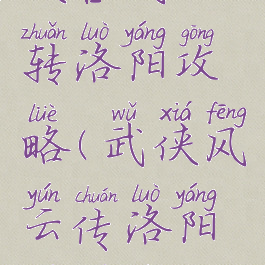 zhuǎn luò yáng gōng
转洛阳攻
lüè wǔ xiá fēng
略(武侠风
yún chuán luò yáng
云传洛阳